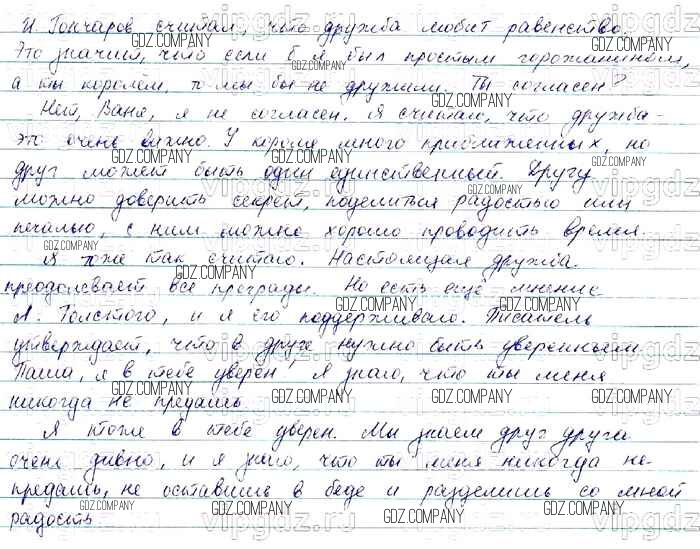 И. Гончаров считал, что дружба любит равенство.
Это значит, что если б я был простым горожанином,
а ты королём, то мы бы не дружили. Ты согласен?
Нет, Ваня, я не согласен. Я считаю, что дружба –
это очень важно. У короля много приближенных, но
друг может быть один единственный. Другу
можно доверить секрет, поделиться радостью или
печалью, с ним можно хорошо проводить время.
Я тоже так считаю. Настоящая дружба
преодолевает все преграды. Но есть ещё мнение
Л. Толстого, и я его поддерживаю. Писатель
утверждает, что в друге нужно быть уверенным
Паша, я в тебе уверен, я знаю, что ты меня
никогда не предашь
Я тоже в тебе уверен. Мы знаем друг друга
очень давно, и я знаю, что ты меня никогда не
предашь, не оставишь в беде и разделишь со мной
радость
GDZ.COMPANY
vipgdz.ru